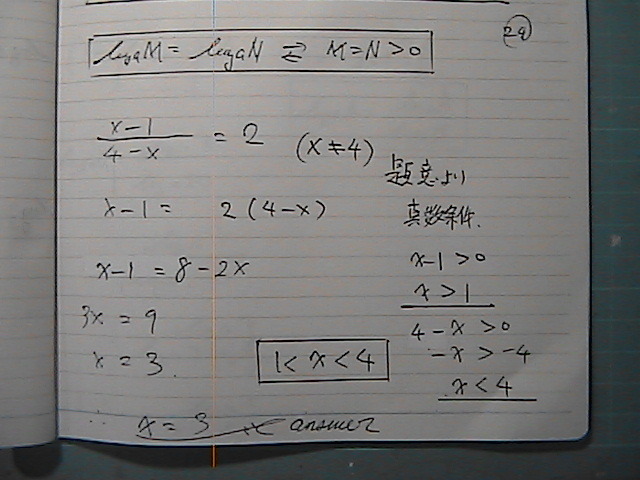 29
log_a M = log_a N ⇄ M = N > 0
x-1 / 4-x = 2 (x≠4)
題意より
x-1 = 2(4-x)
真数条件.
x-1 = 8-2x
x-1>0
x>1
3x = 9
4-x>0
x = 3.
1<x<4
-x>-4
x<4
∴ x = 3 answer